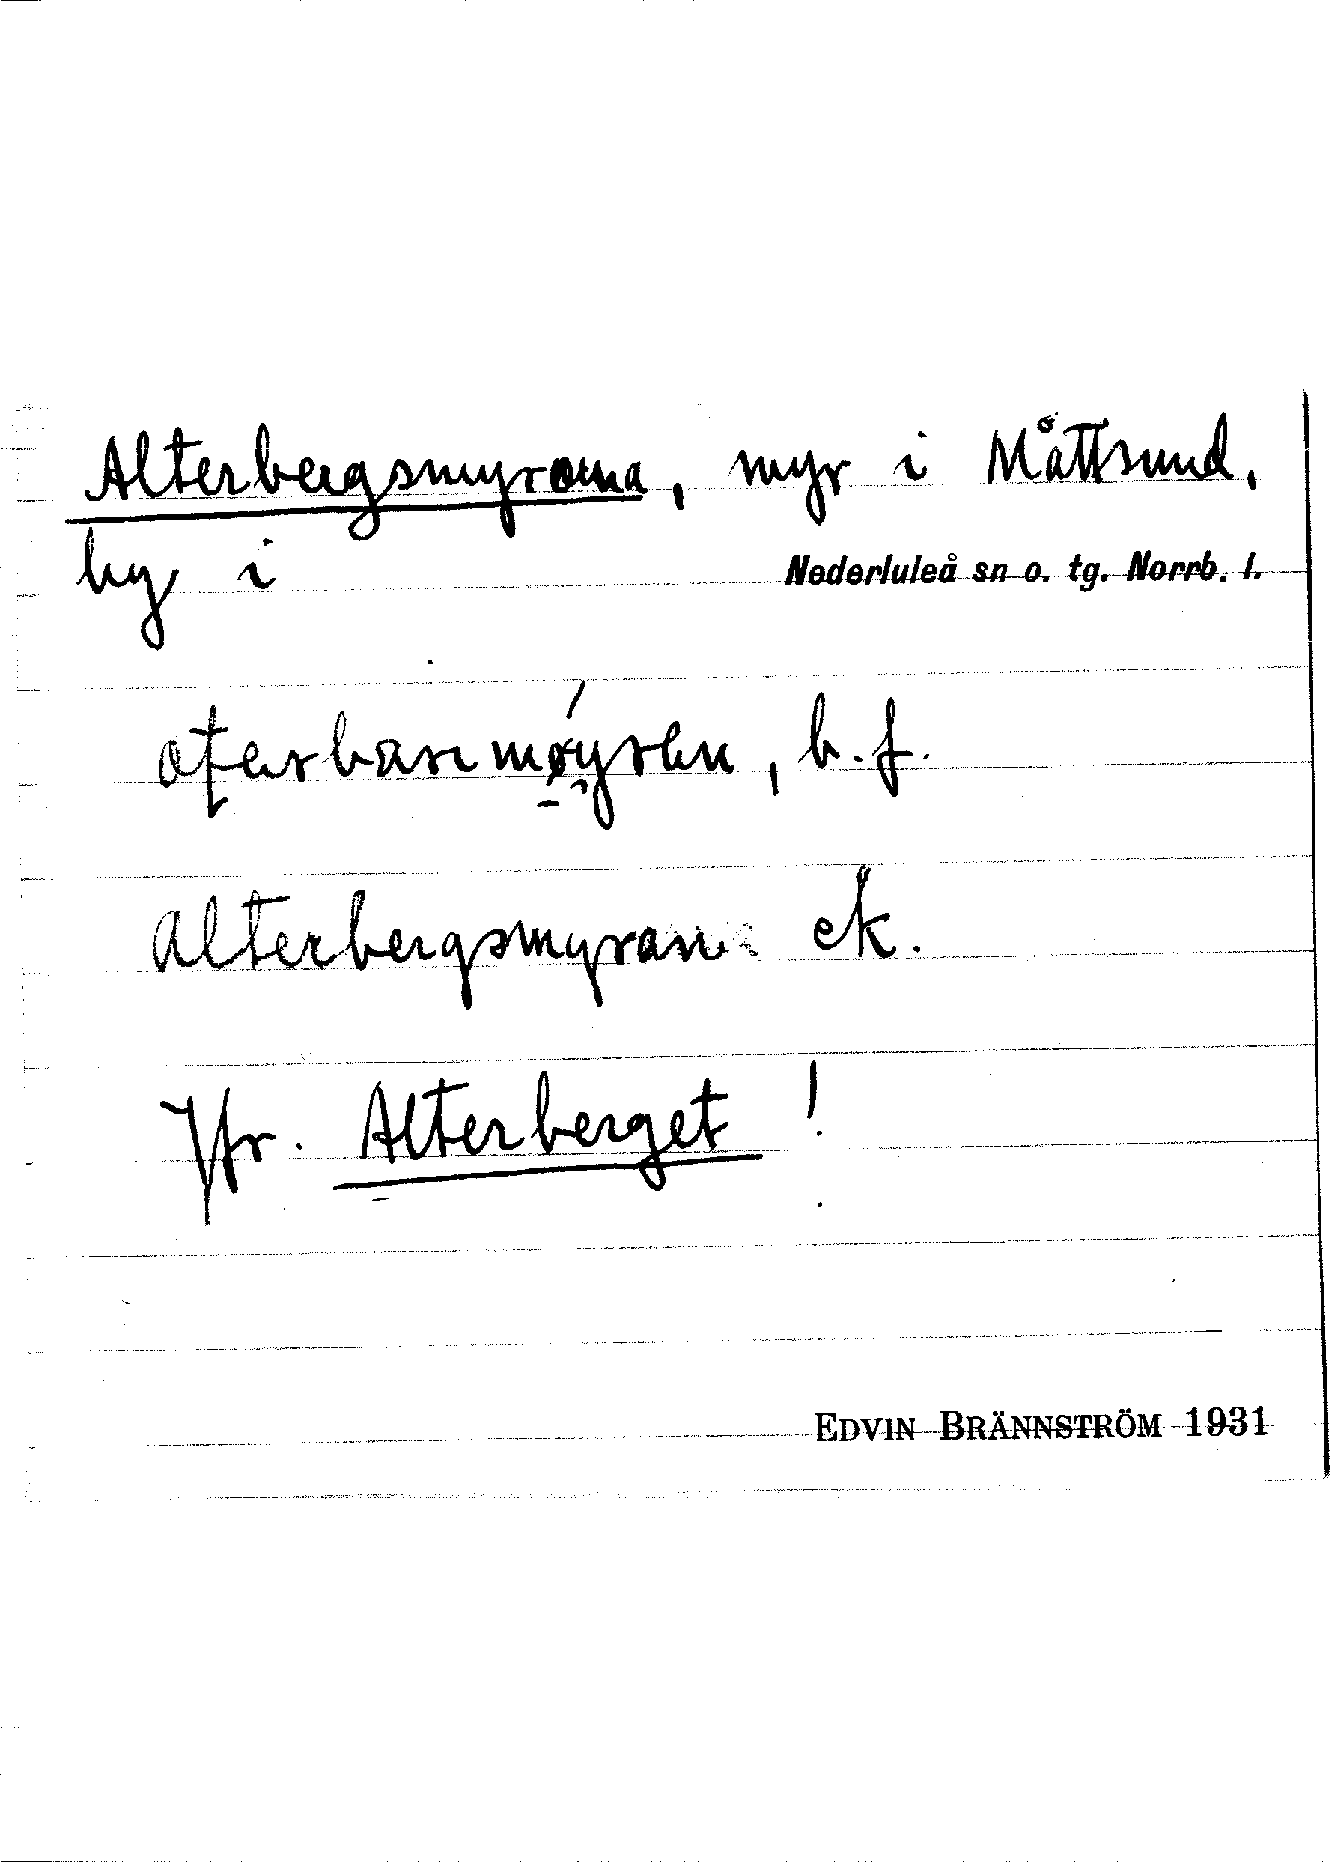 Alterbergsmyrarna, myr i Måttsund,
by i Nederluleå sn o. tg. Norrb. l.
b. f.
Alterbergsmyran ek.
Jfr. Alterberget !
EDVIN BRÄNNSTRÖM 1931